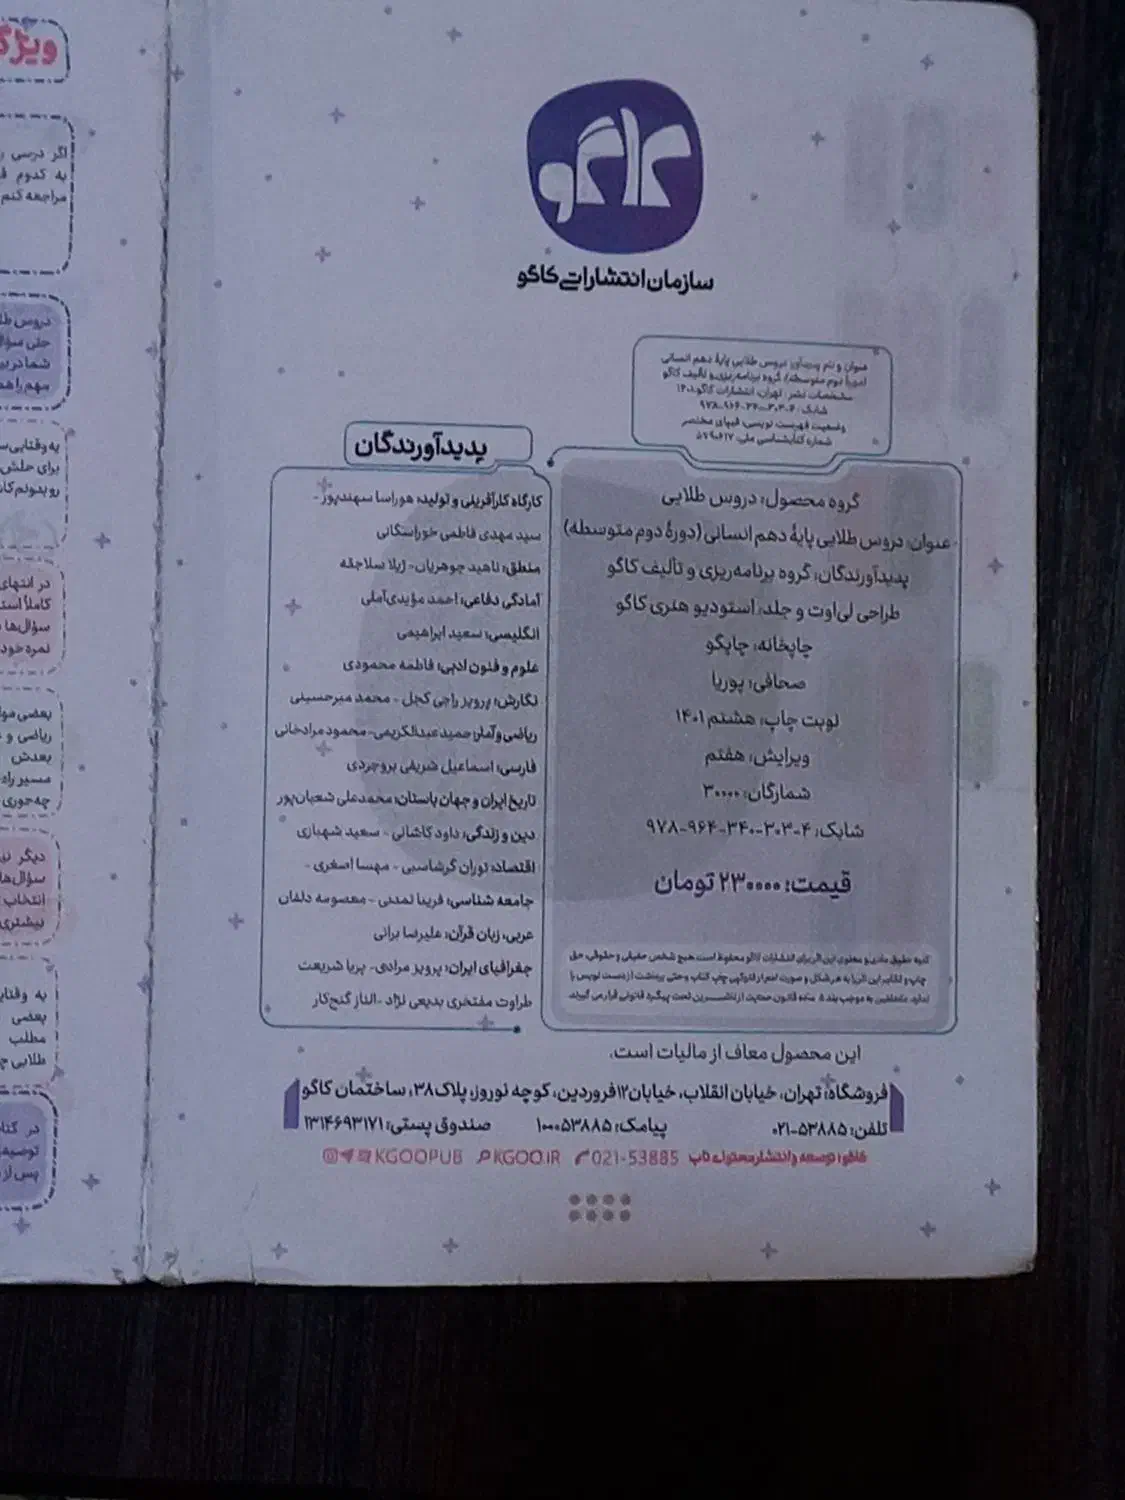 کاگو
سازمان انتشاراتی کاگو
عنوان و نام پدیدآور: دروس طلایی پایهٔ دهم انسانی
(دورهٔ دوم متوسطه)/ گروه برنامه‌ریزی و تألیف کاگو
مشخصات نشر: تهران، انتشارات کاگو، ۱۴۰۱
شابک: ۴-۳۰۳-۳۴۰-۹۶۴-۹۷۸
وضعیت فهرست نویسی: فیپای مختصر
شماره کتابشناسی ملی: ۵۷۹۰۶۱۷
گروه محصول: دروس طلایی
عنوان: دروس طلایی پایهٔ دهم انسانی (دورهٔ دوم متوسطه)
پدیدآورندگان: گروه برنامه‌ریزی و تألیف کاگو
طراحی لی‌اوت و جلد: استودیو هنری کاگو
چاپخانه: چاپگو
صحافی: پوریا
نوبت چاپ: هشتم ۱۴۰۱
ویرایش: هفتم
شمارگان: ۳۰۰۰۰
شابک: ۴-۳۰۳-۳۴۰-۹۶۴-۹۷۸
قیمت: ۲۳۰۰۰۰ تومان
کلیه حقوق مادی و معنوی این اثر برای انتشارات کاگو محفوظ است. هیچ شخص حقیقی و حقوقی، حق
چاپ و تکثیر این اثر را به هر شکل و صورت اعم از فتوکپی، چاپ کتاب و حتی برداشت از دست نویس را
ندارد. متخلفین به موجب بند ۵ ماده قانون حمایت از ناشرین تحت پیگرد قانونی قرار می گیرند.
پدیدآورندگان
کارگاه کارآفرینی و تولید: هوراسا سهندپور -
سید مهدی فاطمی خوراسگانی
منطق: ناهید جوهریان- ژیلا سلاجقه
آمادگی دفاعی: احمد مؤیدی‌آملی
انگلیسی: سعید ابراهیمی
علوم و فنون ادبی: فاطمه محمودی
نگارش: پرویز راجی کجل - محمد میرحسینی
ریاضی و آمار: حمید عبدالکریمی- محمود مرادخانی
فارسی: اسماعیل شریفی بروجردی
تاریخ ایران و جهان باستان: محمدعلی شعبان‌پور
دین و زندگی: داود کاشانی - سعید شهبازی
اقتصاد: توران گرشاسبی - مهسا اصغری -
جامعه شناسی: فریبا تمدنی - معصومه دلفان
عربی، زبان قرآن: علیرضا برانی
جغرافیای ایران: پرویز مرادی- پریا شریعت
طراوت مفتخری بدیعی نژاد -الناز گنج‌کار
این محصول معاف از مالیات است.
فروشگاه: تهران، خیابان انقلاب، خیابان۱۲فروردین، کوچه نوروز، پلاک۳۸، ساختمان کاگو
تلفن: ۵۳۸۸۵-۰۲۱ پیامک: ۱۰۰۰۵۳۸۸۵ صندوق پستی: ۱۳۱۴۶۹۳۱۷۱
کاگو؛ توسعه و انتشار محتوای ناب 021-53885 KGOO.IR KGOOPUB
اگر درسی
به کدوم
مراجعه کنم
دروس
حلی
شما در
مهم را
به وقتایی
برای حلش
رو بدونم
در انتهای
کاملاً
سؤال‌ها
نمره خود
بعضی
ریاضی و
بعدش
مسیر
چه‌جوری
دیگر
سؤال‌ها
انتخاب
بیشتری
به
بعضی
مطلب
طلایی
در
توصیه
پس از